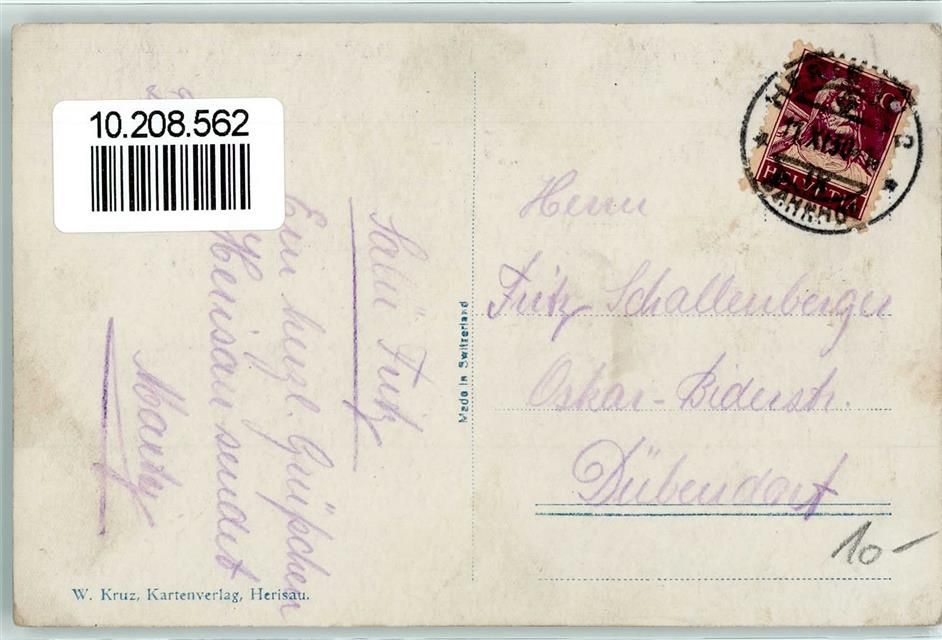 10.208.562
Salü Fritz
Ein herzl. Grüsschen
Herisau sendet
Marty
Made in Switzerland
W. Kruz, Kartenverlag, Herisau.
HELVETIA
BAHNHOF
Herrn
Fritz Schallenberger
Oskar-Biderstr.
Dübendorf
10-